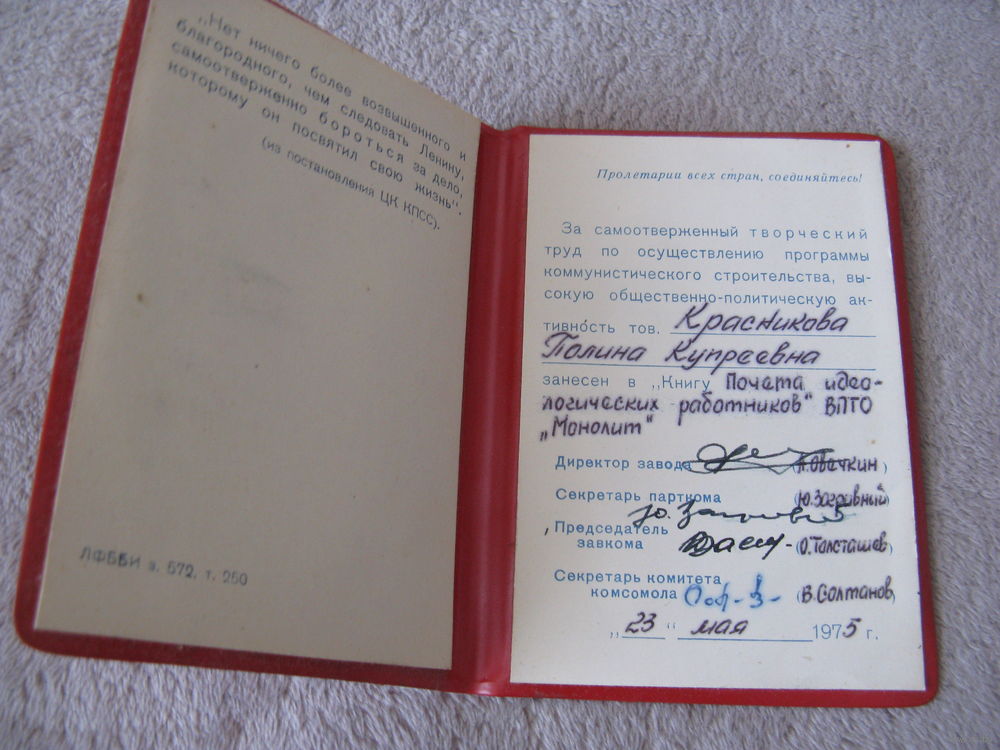 „Нет ничего более возвышенного и
благородного, чем следовать Ленину,
самоотверженно бороться за дело,
которому он посвятил свою жизнь".
(из постановления ЦК КПСС).
ЛФББИ з. 572. т. 250
Пролетарии всех стран, соединяйтесь!
За самоотверженный творческий
труд по осуществлению программы
коммунистического строительства, вы-
сокую общественно-политическую ак-
тивность тов. Красникова
Полина Купреевна
занесен в „Книгу Почета идео-
логических работников" ВПТО
„Монолит"
Директор завода (А.Овечкин)
Секретарь парткома (Ю.Загривный)
Председатель
завкома (О.Толсташев)
Секретарь комитета
комсомола (В.Солтанов)
„23" мая 1975 г.